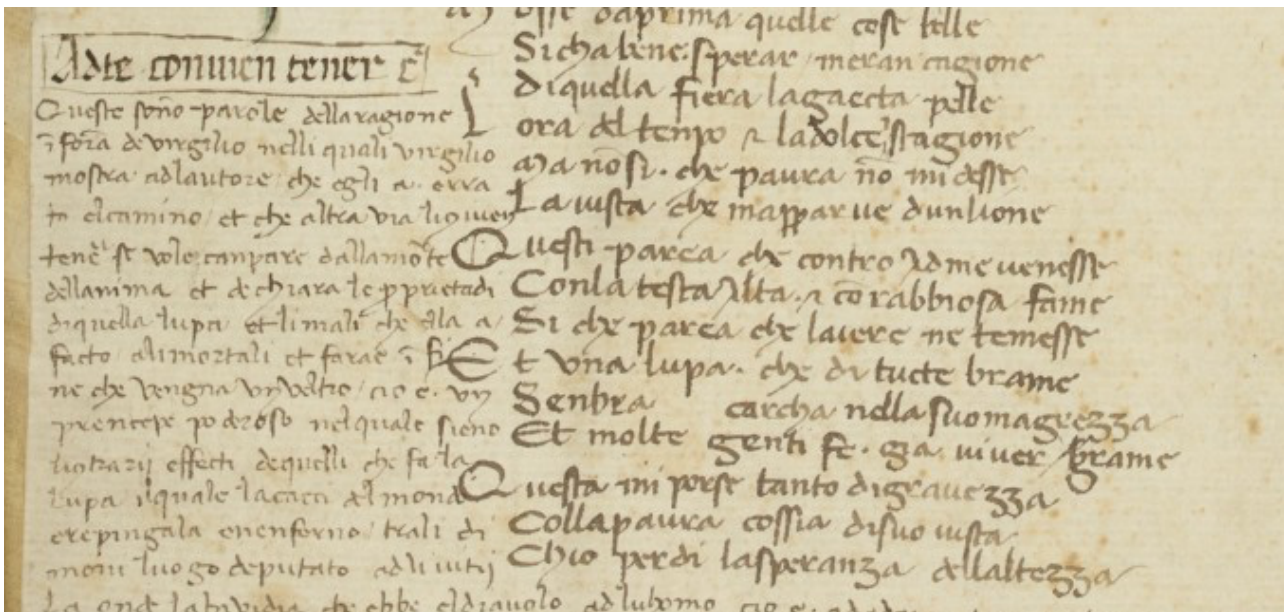 Adte conuien tener
Queste sono parole dellaragione
ī forā de virgilio nelli quali virgilio
mostra adlautore che egli a. erra
to elcamino et che altra via
se vole canpare dallamōte
dellanima et dechiara le pprietadi
diquella lupa et li mali che ella a
facto alimortali et farae ī fi
ne che vengna vnveltro cio e. vn
prencepe poderoso nelquale sieno
effecti dequelli che fa la
lupa ilquale lacacci del mondo
erepingala enenferno trali di
moni luogo deputato adli vitij
La onde lanvidia che ebbe eldiauolo adluhomo
osse daprima quelle cose belle
Sicha bene. sperar meran cagione
Diquella fiera lagaecta pelle
Lora del tenpo & ladolce stagione
Ma nō si. che paura nō mi desse
La uista che mapparue dunlione
Questi parea che contro adme uenesse
Conla testa alta. & cō rabbiosa fame
Si che parea che laiere ne temesse
Et vna lupa. che di tucte brame
Senbra carcha nella suo magrezza
Et molte genti fe. gia uiuer grame
Questa mi porse tanto digrauezza
Collapaura cossia disuo uista
Chio perdi lasperanza dellaltezza